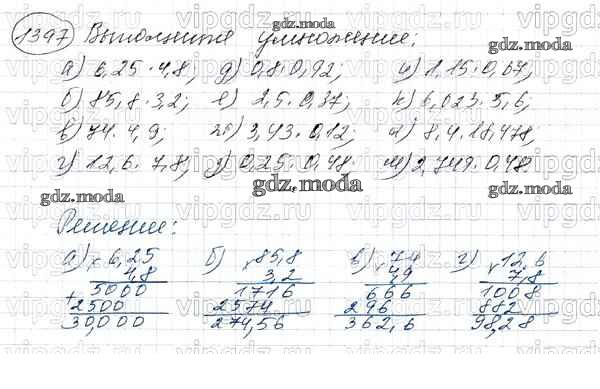 1397 Выполните умножение:
а) 6,25 · 4,8; д) 0,8 · 0,92; и) 1,15 · 0,07;
б) 85,8 · 3,2; е) 2,5 · 0,37; к) 6,023 · 5,6;
в) 74 · 4,9; ж) 3,43 · 0,12; л) 8,4 · 18,478;
г) 12,6 · 7,8; з) 0,25 · 0,48 м) 2,749 · 0,48.
Решение:
а) × 6,25 б) × 85,8 в) × 74 г) × 12,6
4,8 3,2 4,9 7,8
+ 5000 1716 666 1008
2500 2574 296 882
30,000 274,56 362,6 98,28
vipgdz.ru
gdz.moda